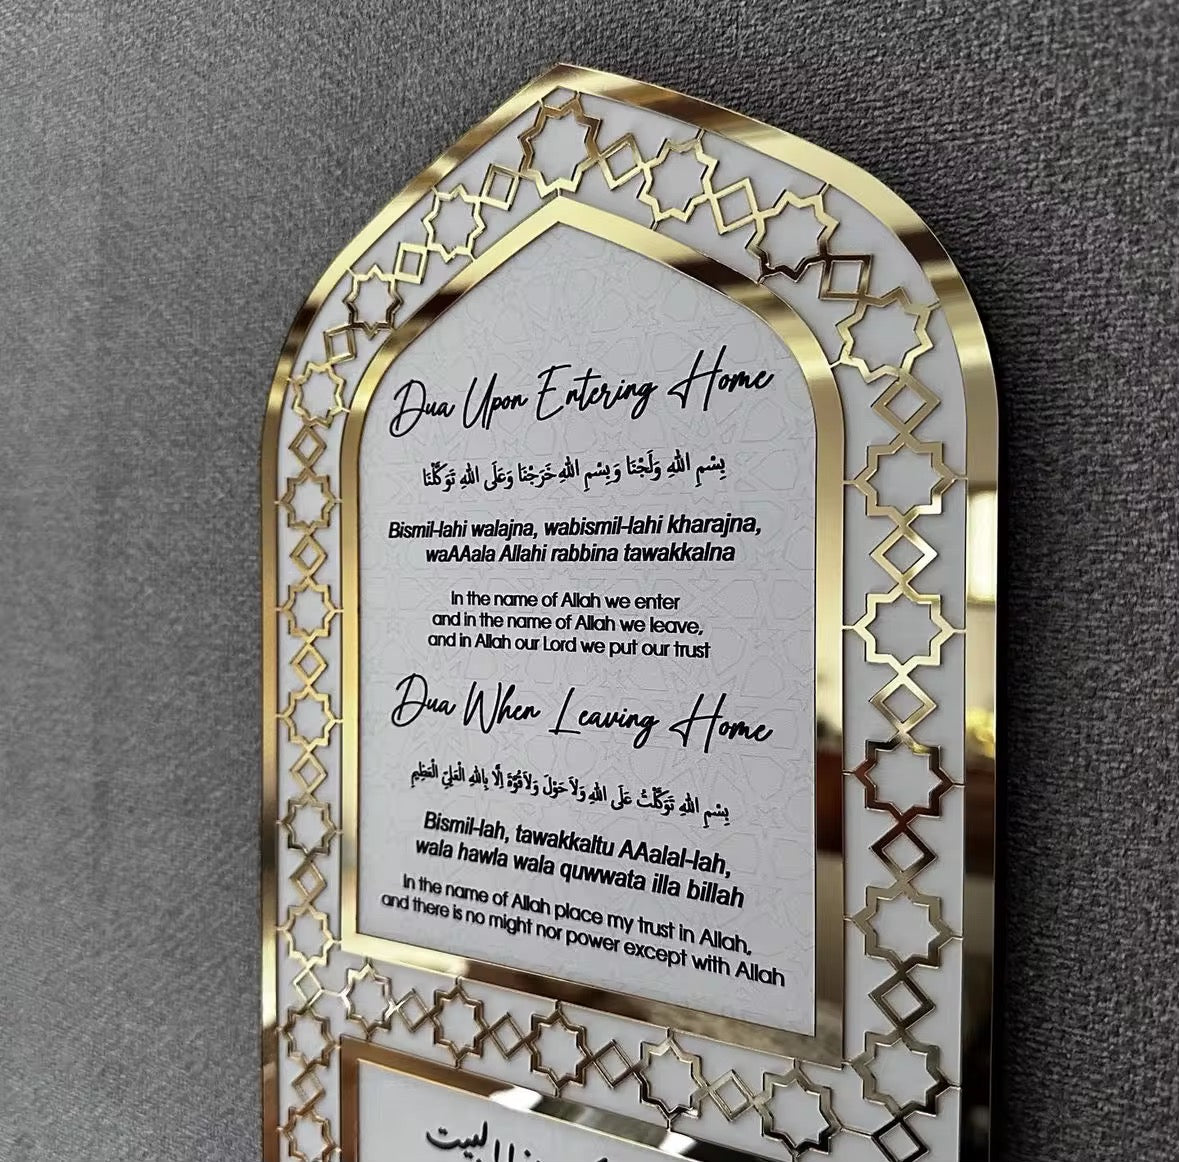 Dua Upon Entering Home
بِسْمِ اللهِ وَلَجْنَا وَبِسْمِ اللهِ خَرَجْنَا وَعَلَى اللهِ تَوَكَّلْنَا
Bismil-lahi walajna, wabismil-lahi kharajna,
waAAala Allahi rabbina tawakkalna
In the name of Allah we enter
and in the name of Allah we leave,
and in Allah our Lord we put our trust
Dua When Leaving Home
بِسْمِ اللهِ تَوَكَّلْتُ عَلَى اللهِ وَلاَ حَوْلَ وَلاَ قُوَّةَ اِلَّا بِاللهِ الْعَلِيِّ الْعَظِيمِ
Bismil-lah, tawakkaltu AAalal-lah,
wala hawla wala quwwata illa billah
In the name of Allah place my trust in Allah,
and there is no might nor power except with Allah